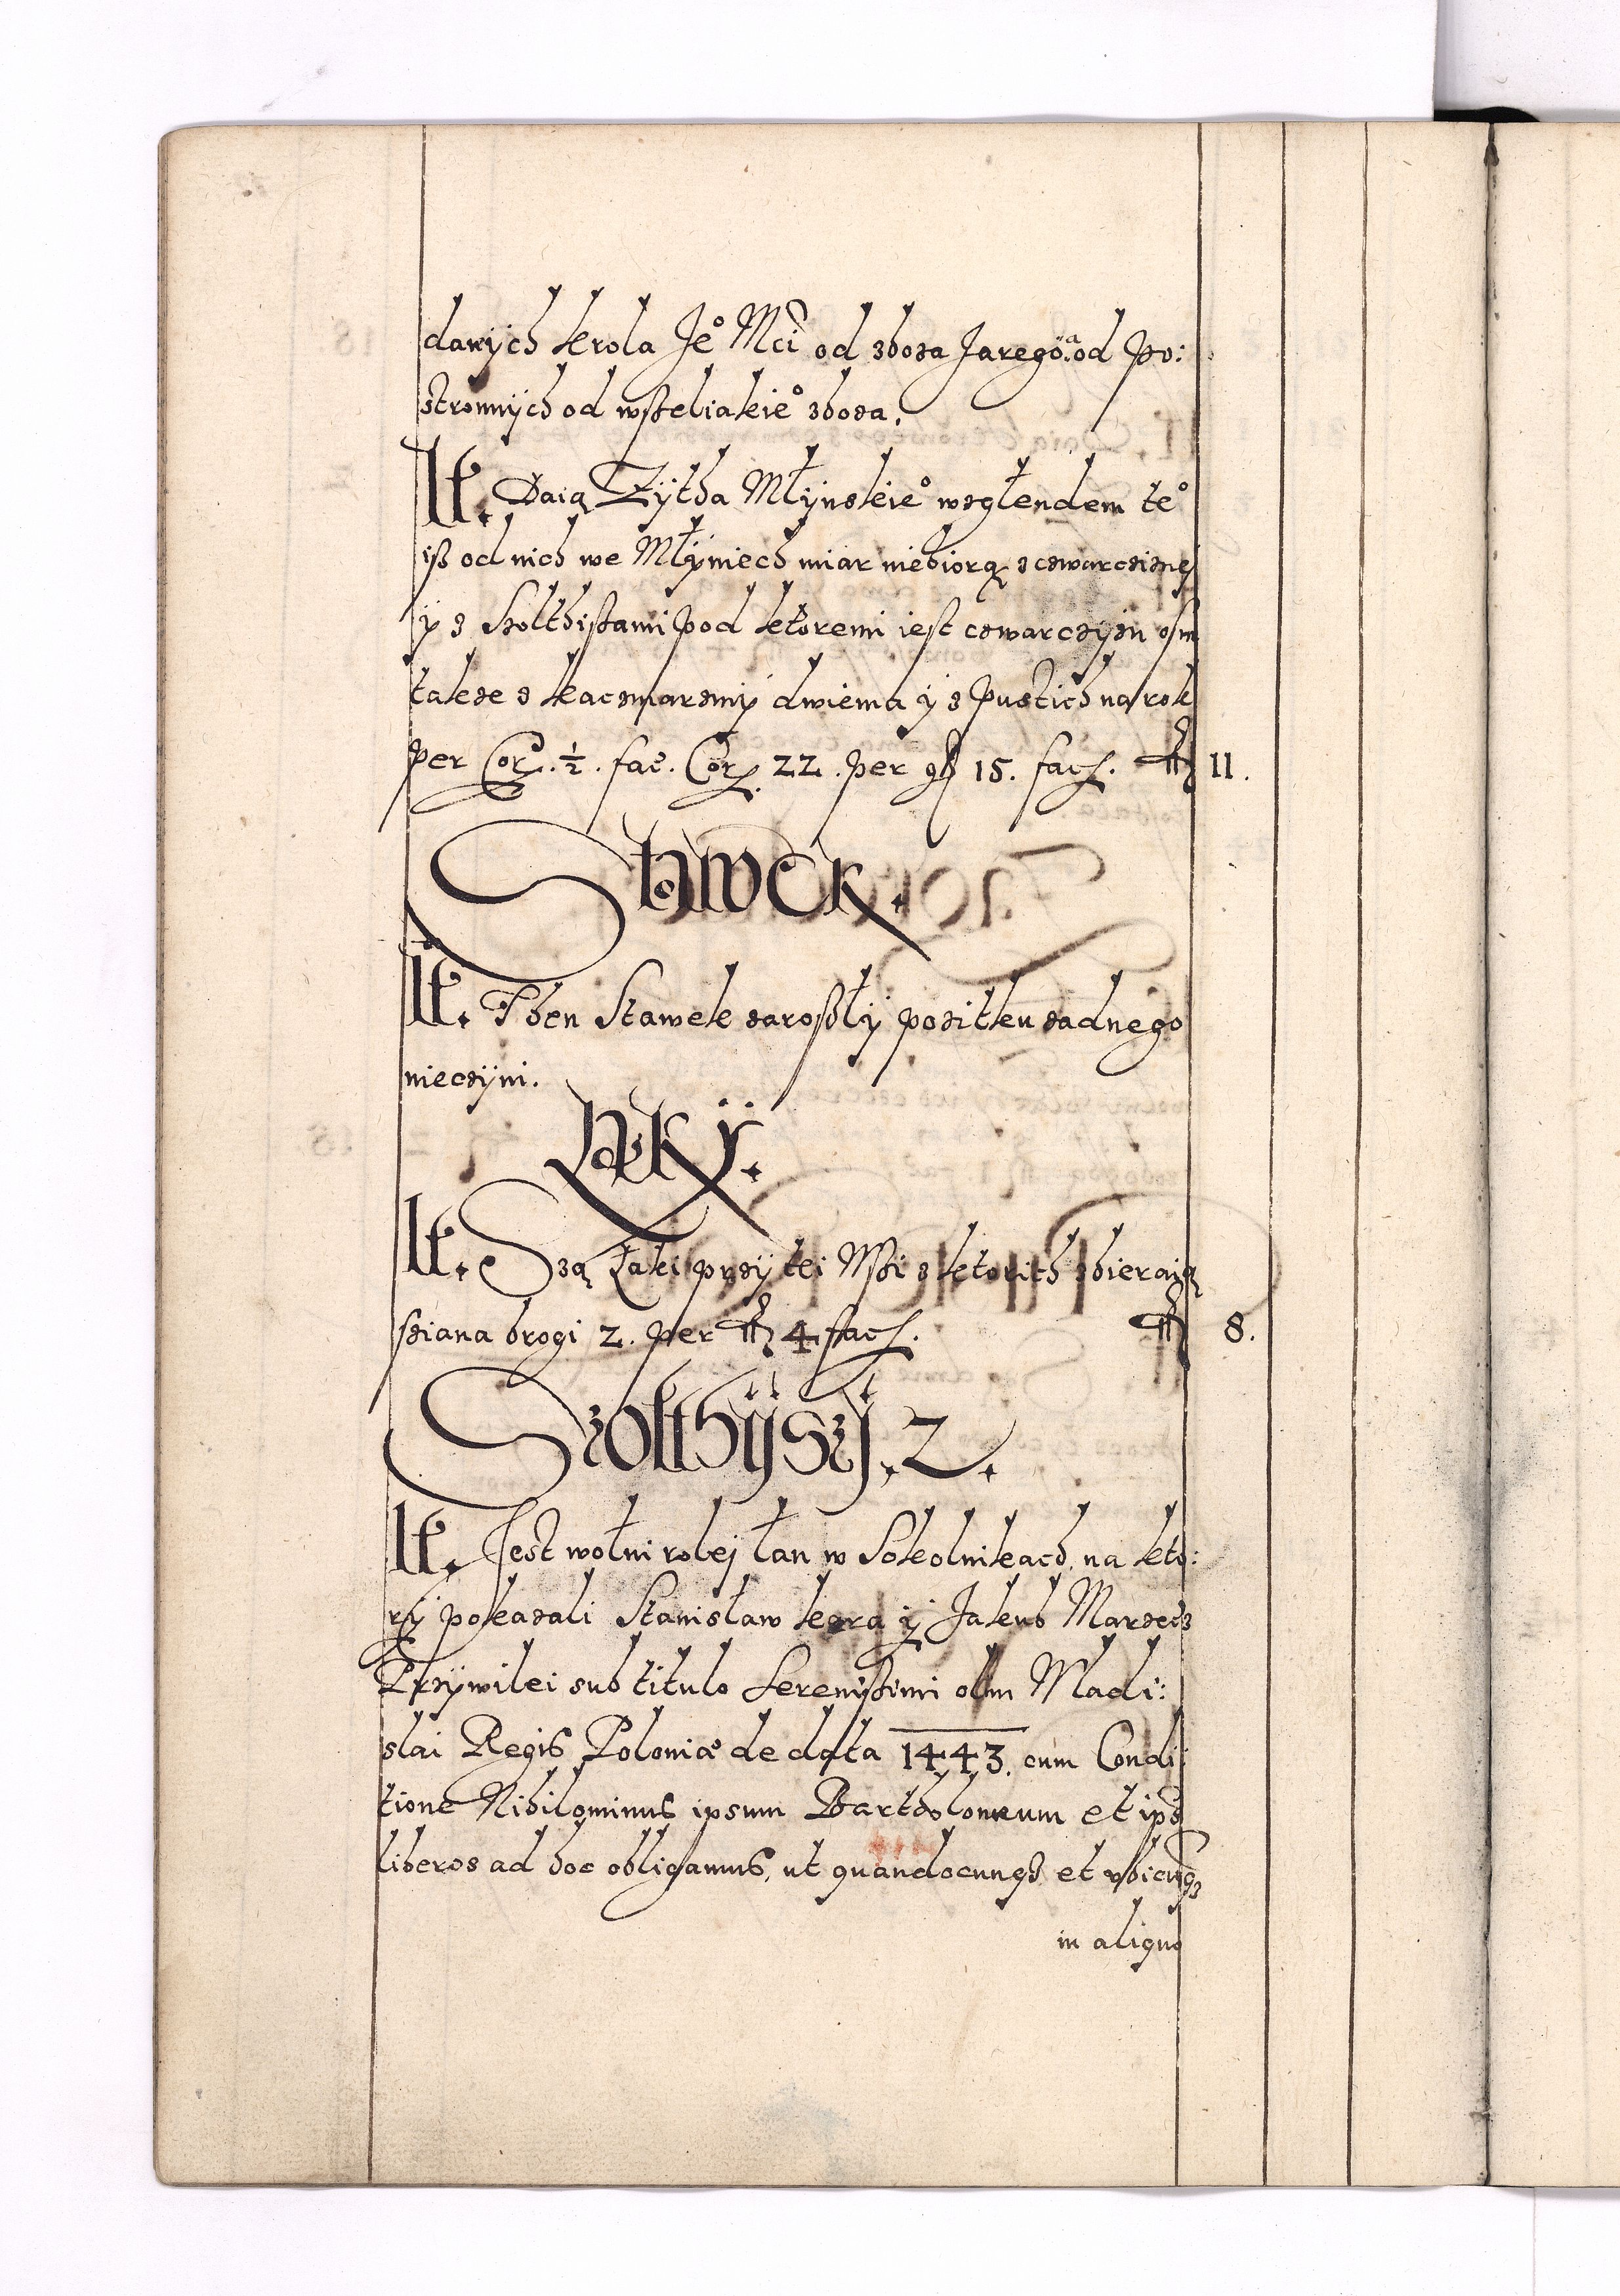 danÿch krola Je° Mći od zboza Jarego: a od po:
stronnÿch od wßeliakie° zboza.
It. Daią Zÿtha Młÿnskie° wzglendem te°
iß od nich we Młÿniech miar niebiorą z czwarczizneÿ
ÿ z Szolthißami pod ktoremi iest czwarczÿzn osm
takze z kaczmarzmÿ dwiema ÿ z pustich na rok
per Cor. ½. fac. Cor. 22. per gß 15. fac. 11.
Stawek.
It. Then Stawek zaroßłÿ pozitku zadnego
nieczÿni.
Łąkÿ.
It. Szą Łąki przÿ tei Wßi z ktorich zbieraią
sziana brogi 2. per 4 fac. 8.
Szolthÿszÿ. 2.
It. Jest wolni rolej łan w Sokolnikach na kto:
rÿ pokazali Stanisław kera ÿ Jakub Marzecz
Przÿwilei sub titulo Serenißimi olim Wladi:
slai Regis Poloniæ de data 1443. cum Condi:
tione Nihilominus ipsum Bartholomeum et ips
liberos ad hoc obligamus, ut quandocunqz et ubicunqz
in aliquo